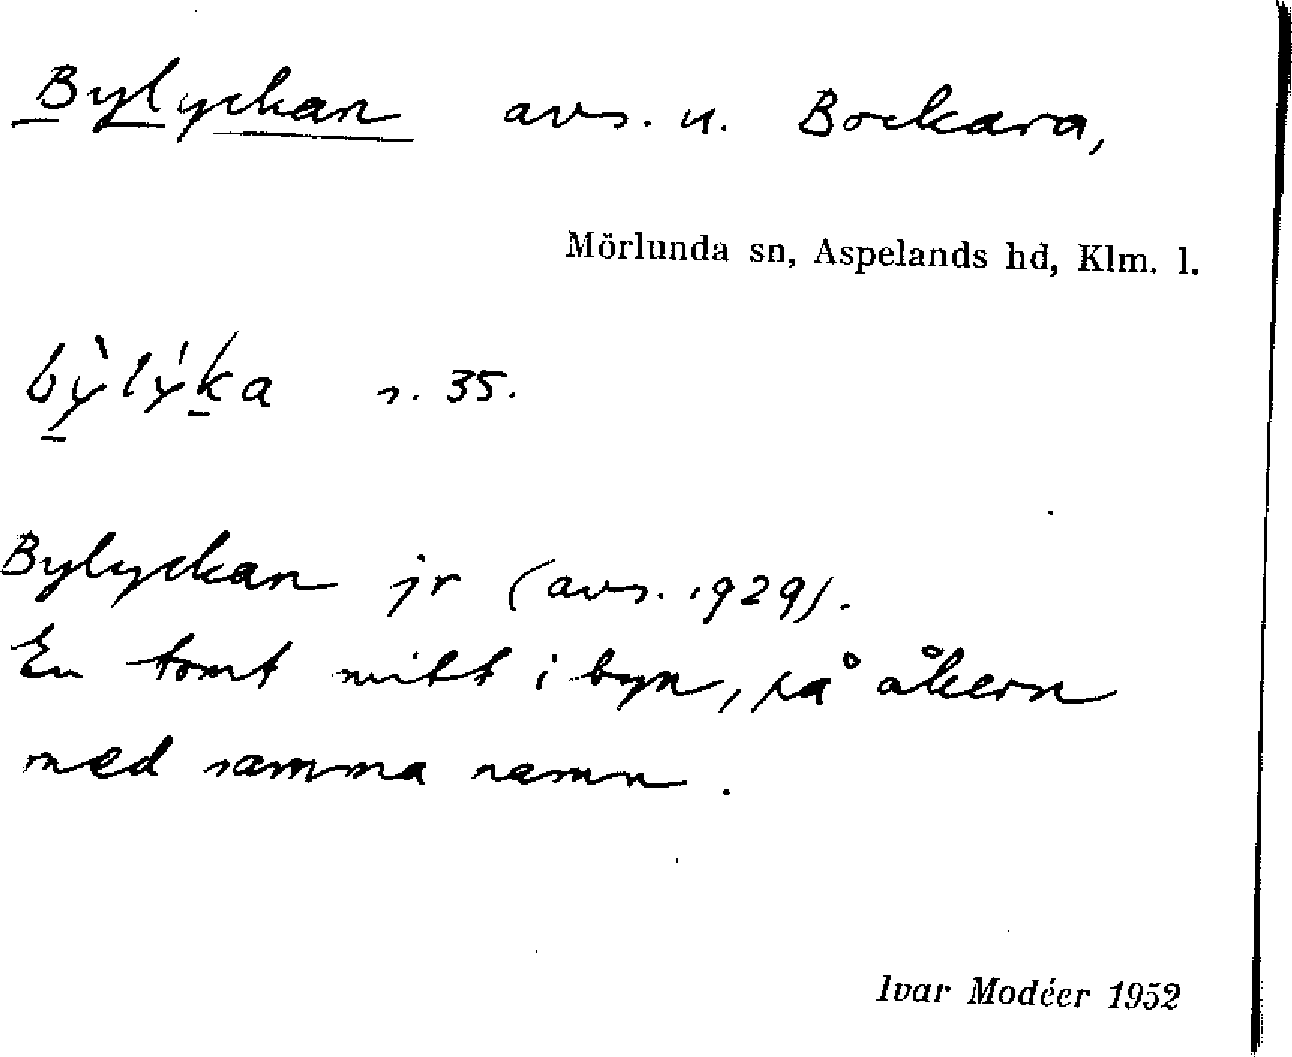 Bylyckan avs. u. Bockara,
Mörlunda sn, Aspelands hd, Klm. l.
bỳ̱lýḵa s. 35.
Bylyckan jr (avs. 1929).
En tomt mitt i byn, på åkern
med samma namn.
Ivar Modéer 1952